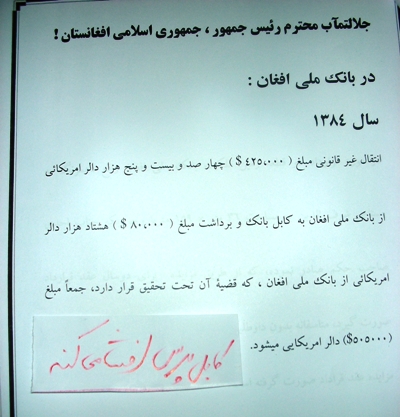 جلالتمآب محترم رئیس جمهور ، جمهوری اسلامی افغانستان !
در بانک ملی افغان :
سال ۱۳۸٤
انتقال غیر قانونی مبلغ ( ٤۲۵،۰۰۰ $ ) چهار صد و بیست و پنج هزار دالر امریکائی
از بانک ملی افغان به کابل بانک و برداشت مبلغ ( ۸۰،۰۰۰ $ ) هشتاد هزار دالر
امریکائی از بانک ملی افغان ، که قضیۀ آن تحت تحقیق قرار دارد، جمعاً مبلغ
(۵۰۵۰۰۰$) دالر امریکایی میشود.
کابل پرس افشا می کند